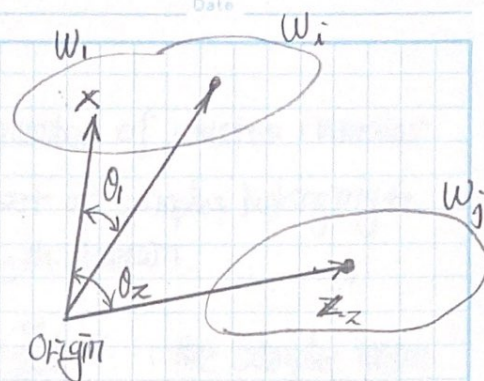 Date
W₁
Wᵢ
x
θ₁
Wⱼ
θ₂
Z₂
Origin